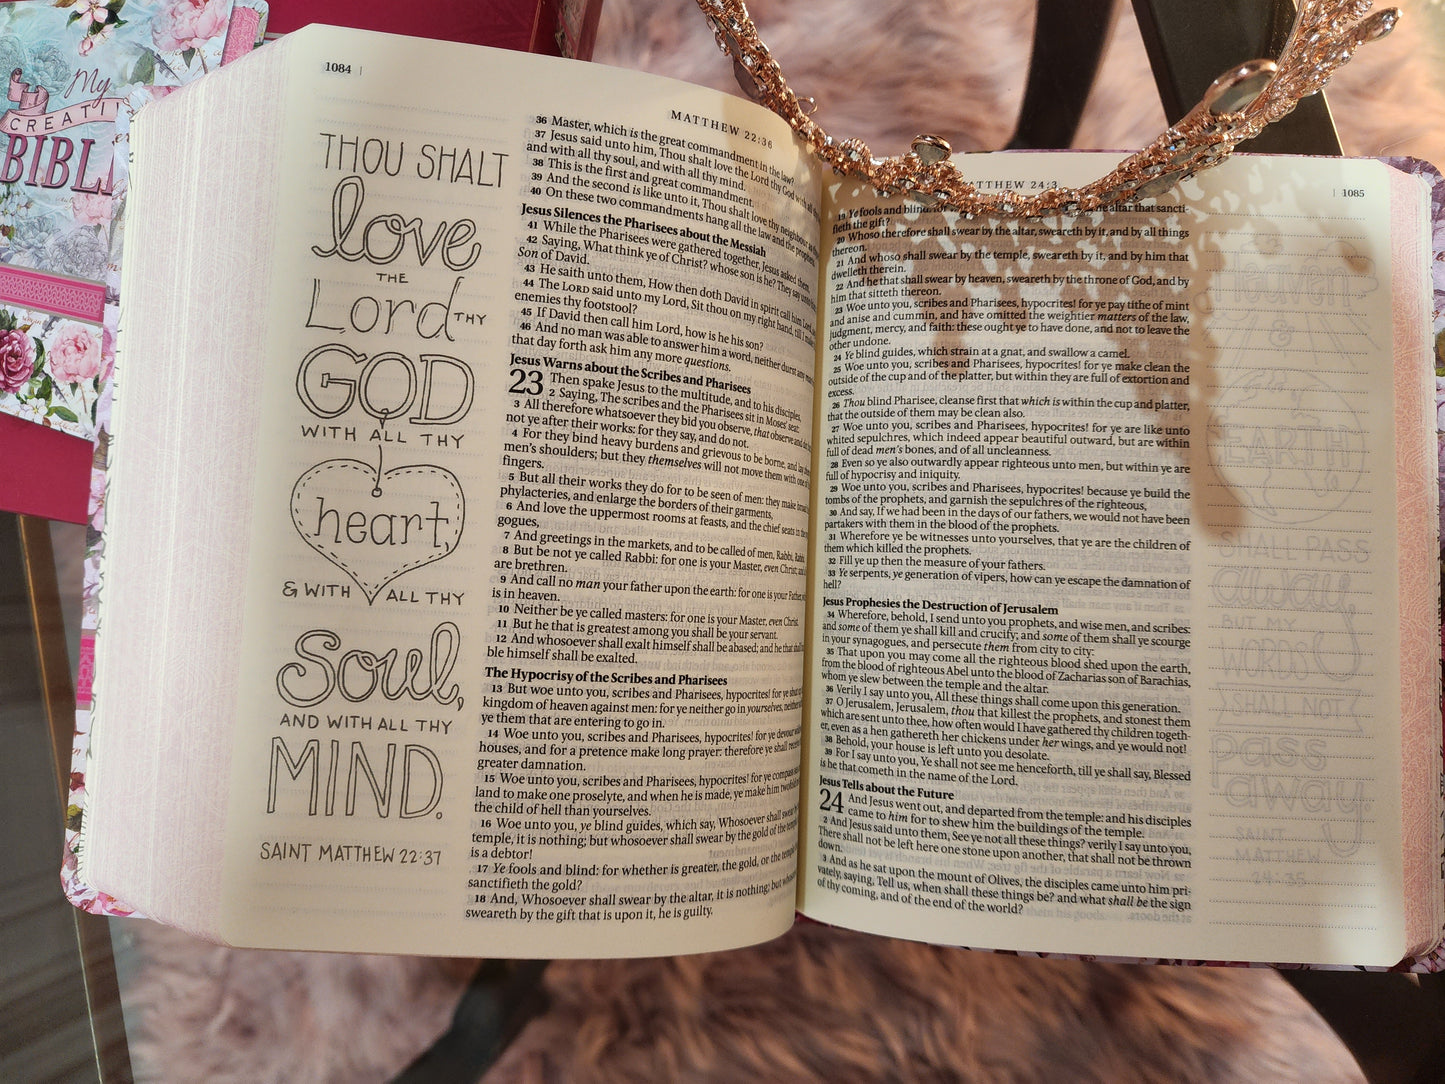 My
CREATI
BIBL
1084
MATTHEW 22:36
THOU SHALT
love
THE
Lord THY
GOD
WITH ALL THY
heart,
& WITH ALL THY
Soul,
AND WITH ALL THY
MIND.
SAINT MATTHEW 22:37
36 Master, which is the great commandment in the law?
37 Jesus said unto him, Thou shalt love the Lord thy God with all thy
and with all thy soul, and with all thy mind.
38 This is the first and great commandment.
39 And the second is like unto it, Thou shalt love thy neighbour as thy
40 On these two commandments hang all the law and the prophets.
Jesus Silences the Pharisees about the Messiah
41 While the Pharisees were gathered together, Jesus asked them,
42 Saying, What think ye of Christ? whose son is he? They say unto
Son of David.
43 He saith unto them, How then doth David in spirit call him Lord,
44 The LORD said unto my Lord, Sit thou on my right hand, till I make
enemies thy footstool?
45 If David then call him Lord, how is he his son?
46 And no man was able to answer him a word, neither durst any
that day forth ask him any more questions.
Jesus Warns about the Scribes and Pharisees
23 Then spake Jesus to the multitude, and to his disciples,
2 Saying, The scribes and the Pharisees sit in Moses' seat:
3 All therefore whatsoever they bid you observe, that observe and do;
not ye after their works: for they say, and do not.
4 For they bind heavy burdens and grievous to be borne, and lay
men's shoulders; but they themselves will not move them with one of
fingers.
5 But all their works they do for to be seen of men: they make broad
phylacteries, and enlarge the borders of their garments,
6 And love the uppermost rooms at feasts, and the chief seats in the
gogues,
7 And greetings in the markets, and to be called of men, Rabbi, Rabbi.
8 But be not ye called Rabbi: for one is your Master, even Christ; and
are brethren.
9 And call no man your father upon the earth: for one is your Father,
is in heaven.
10 Neither be ye called masters: for one is your Master, even Christ.
11 But he that is greatest among you shall be your servant.
12 And whosoever shall exalt himself shall be abased; and he that shall
ble himself shall be exalted.
The Hypocrisy of the Scribes and Pharisees
13 But woe unto you, scribes and Pharisees, hypocrites! for ye shut up
kingdom of heaven against men: for ye neither go in yourselves, neither
ye them that are entering to go in.
14 Woe unto you, scribes and Pharisees, hypocrites! for ye devour
houses, and for a pretence make long prayer: therefore ye shall receive
greater damnation.
15 Woe unto you, scribes and Pharisees, hypocrites! for ye compass
land to make one proselyte, and when he is made, ye make him twofold
the child of hell than yourselves.
16 Woe unto you, ye blind guides, which say, Whosoever shall swear by
temple, it is nothing; but whosoever shall swear by the gold of the temple,
is a debtor!
17 Ye fools and blind: for whether is greater, the gold, or the temple
sanctifieth the gold?
18 And, Whosoever shall swear by the altar, it is nothing; but
sweareth by the gift that is upon it, he is guilty.
MATTHEW 24:3
1085
19 Ye fools and blind: for altar that sancti-
fieth the gift?
20 Whoso therefore shall swear by the altar, sweareth by it, and by all things
thereon.
21 And whoso shall swear by the temple, sweareth by it, and by him that
dwelleth therein.
22 And he that shall swear by heaven, sweareth by the throne of God, and by
him that sitteth thereon.
23 Woe unto you, scribes and Pharisees, hypocrites! for ye pay tithe of mint
and anise and cummin, and have omitted the weightier matters of the law,
judgment, mercy, and faith: these ought ye to have done, and not to leave the
other undone.
24 Ye blind guides, which strain at a gnat, and swallow a camel.
25 Woe unto you, scribes and Pharisees, hypocrites! for ye make clean the
outside of the cup and of the platter, but within they are full of extortion and
excess.
26 Thou blind Pharisee, cleanse first that which is within the cup and platter,
that the outside of them may be clean also.
27 Woe unto you, scribes and Pharisees, hypocrites! for ye are like unto
whited sepulchres, which indeed appear beautiful outward, but are within
full of dead men's bones, and of all uncleanness.
28 Even so ye also outwardly appear righteous unto men, but within ye are
full of hypocrisy and iniquity.
29 Woe unto you, scribes and Pharisees, hypocrites! because ye build the
tombs of the prophets, and garnish the sepulchres of the righteous,
30 And say, If we had been in the days of our fathers, we would not have been
partakers with them in the blood of the prophets.
31 Wherefore ye be witnesses unto yourselves, that ye are the children of
them which killed the prophets.
32 Fill ye up then the measure of your fathers.
33 Ye serpents, ye generation of vipers, how can ye escape the damnation of
hell?
Jesus Prophesies the Destruction of Jerusalem
34 Wherefore, behold, I send unto you prophets, and wise men, and scribes:
and some of them ye shall kill and crucify; and some of them shall ye scourge
in your synagogues, and persecute them from city to city:
35 That upon you may come all the righteous blood shed upon the earth,
from the blood of righteous Abel unto the blood of Zacharias son of Barachias,
whom ye slew between the temple and the altar.
36 Verily I say unto you, All these things shall come upon this generation.
37 O Jerusalem, Jerusalem, thou that killest the prophets, and stonest them
which are sent unto thee, how often would I have gathered thy children togeth-
er, even as a hen gathereth her chickens under her wings, and ye would not!
38 Behold, your house is left unto you desolate.
39 For I say unto you, Ye shall not see me henceforth, till ye shall say, Blessed
is he that cometh in the name of the Lord.
Jesus Tells about the Future
24 And Jesus went out, and departed from the temple: and his disciples
came to him for to shew him the buildings of the temple.
2 And Jesus said unto them, See ye not all these things? verily I say unto you,
There shall not be left here one stone upon another, that shall not be thrown
down.
3 And as he sat upon the mount of Olives, the disciples came unto him pri-
vately, saying, Tell us, when shall these things be? and what shall be the sign
of thy coming, and of the end of the world?
Heaven
&
EARTH
SHALL PASS
away,
BUT MY
WORDS
SHALL NOT
pass
away
SAINT
MATTHEW
24:35